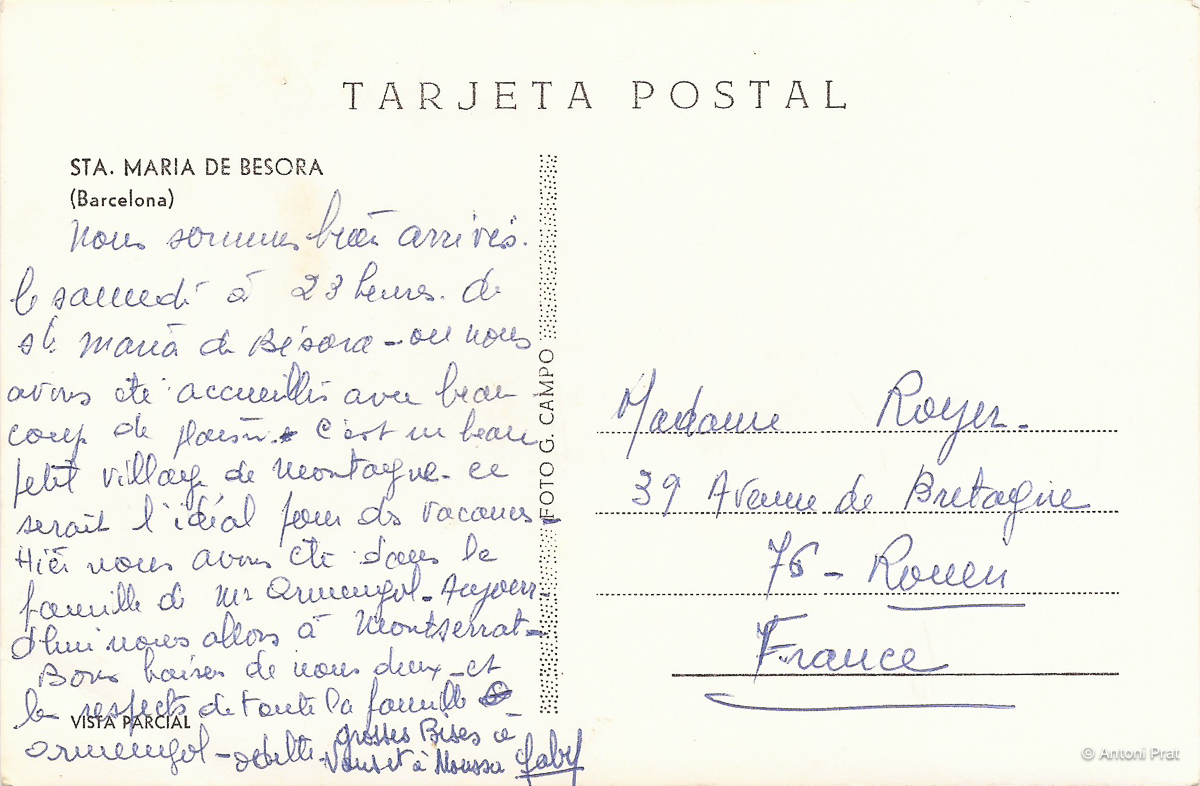 TARJETA POSTAL
STA. MARIA DE BESORA
(Barcelona)
Nous sommes bien arrivés.
le samedi à 23 heures. de
Ste Maria de Bésora - ou nous
avons été accueillis avec beau
coup de plaisir. C'est un beau
petit village de montagne - ce
serait l'idéal pour ds vacances -
Hier nous avons été dans la
famille de Mr Armengol - Aujourd
d'hui nous allons à Montserrat -
Bons baisers de nous deux - et
les respects de toute la famille
VISTA PARCIAL
Armengol - Odette
grosses Bises à
vous et à Moussa Gaby
FOTO G. CAMPO
Madame Royer -
39 Avenue de Bretagne
76 - Rouen
France
© Antoni Prat